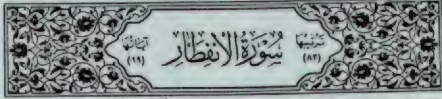 ترتيبها (٨٢) سُورَةُ الانفِطَارِ آياتها (١٩)